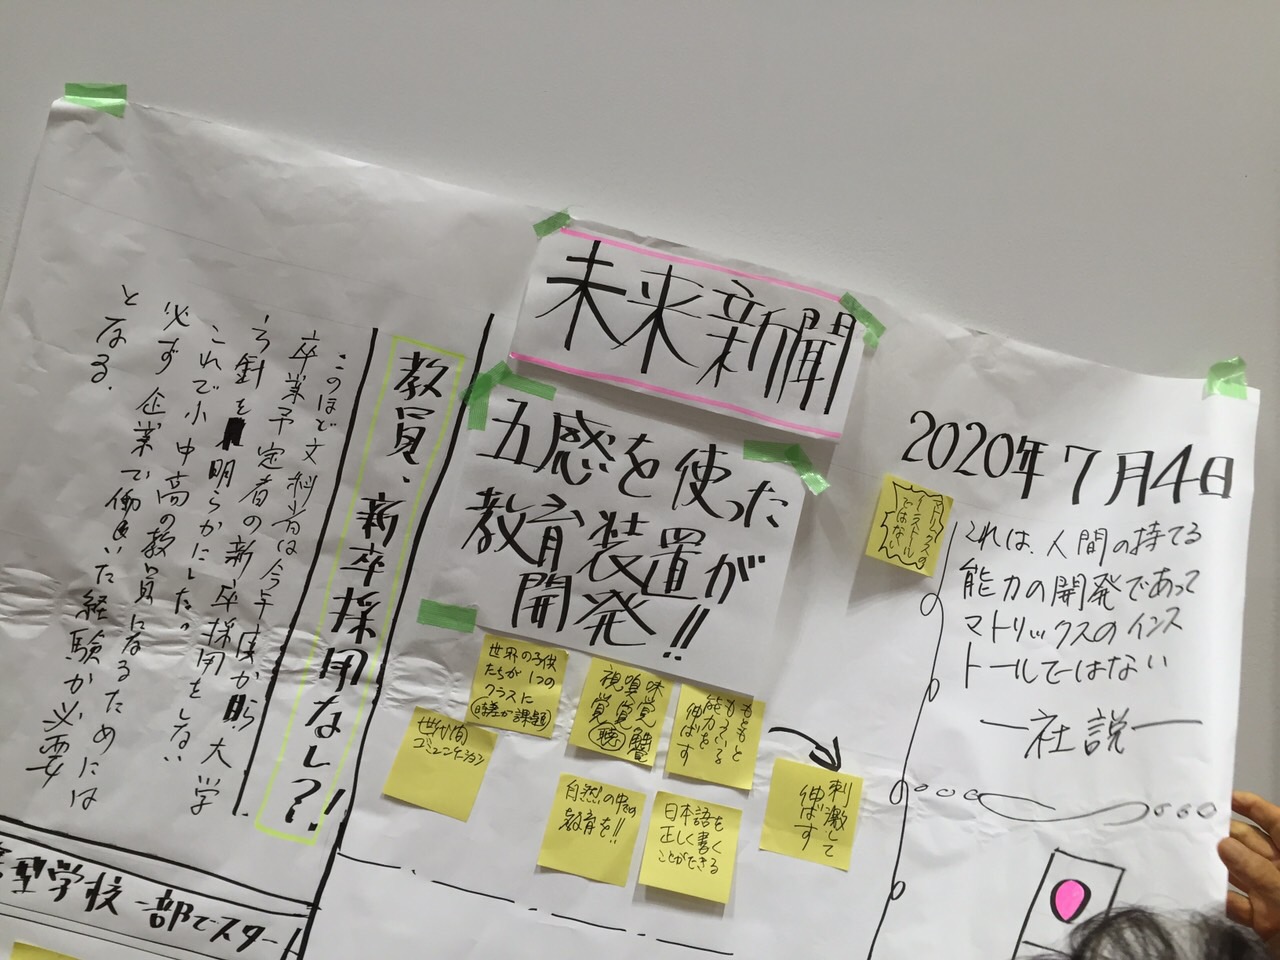 未来新聞
2020年7月4日
五感を使った
教育装置が
開発!!
これは、人間の持てる
能力の開発であって
マトリックスのインス
トールではない
社説
マトリックスの
インストール
ではない
世界の子供
たちが1つの
クラスに
(時差が課題)
視覚
嗅覚
味覚
聴
触覚
もともと
もっている
能力を
伸ばす
刺激して
伸ばす
世代間
コミュニケーション
自然の中での
教育を!!
日本語を
正しく書く
ことができる
教員、新卒採用なし?!
このほど文科省は今年度から大学
卒業予定者の新卒採用をしない
方針を明らかにした。
これで小中高の教員になるためには
必ず企業で働いた経験が必要
となる.
型学校一部でスタート